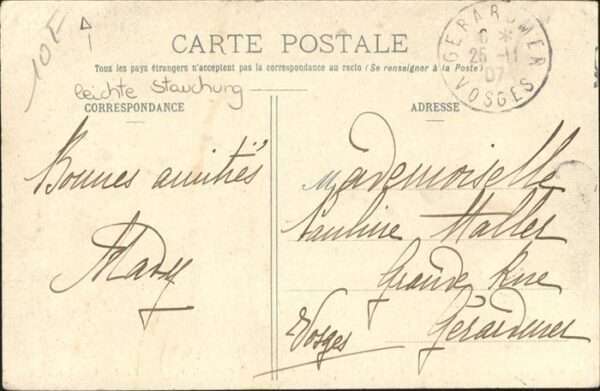 10F
CARTE POSTALE
Tous les pays étrangers n'acceptent pas la correspondance au recto (Se renseigner à la Poste)
leichte Stauchung
CORRESPONDANCE
ADRESSE
GERARDMER
6 *
25 -11
07
VOSGES
Bonnes amitiés
Mademoiselle
Pauline Mallet
Grande Rue
Gérardmer
Vosges